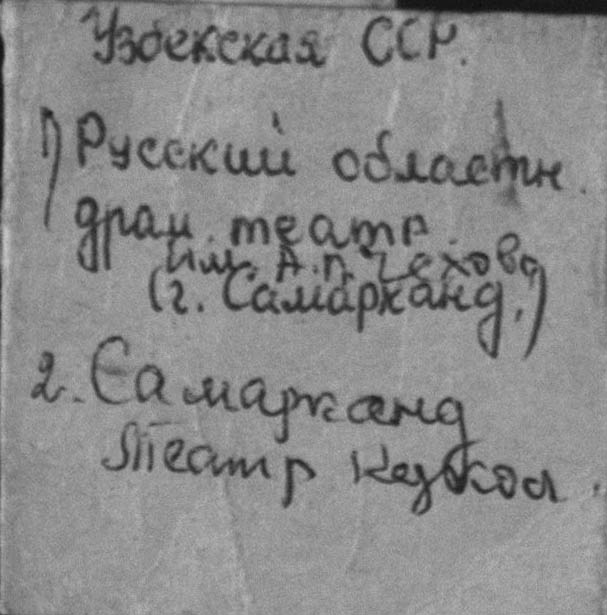 Узбекская ССР.
1) Русский областн.
драм. театр.
им. А.П. Чехова
(г. Самарканд.)
2. Самарканд
Театр кукол.